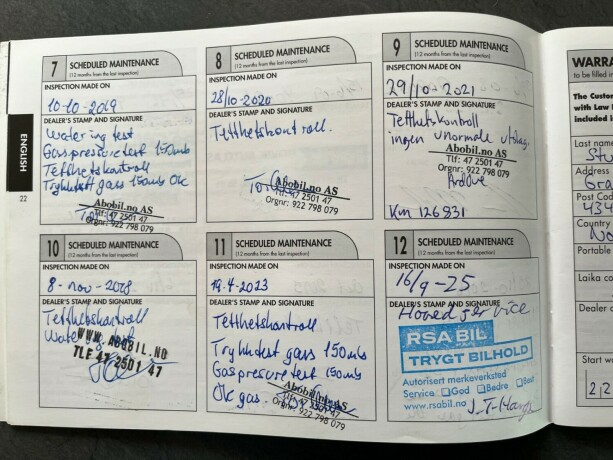 7 SCHEDULED MAINTENANCE
(12 months from the last inspection)
INSPECTION MADE ON
10-10-2019
DEALER'S STAMP AND SIGNATURE
Watering test
Gasspressure test 150mb
Tetthetskontroll
Trykktest gass 150mb Ok
Abobil.no AS
Tlf: 47 2501 47
Orgnr: 922 798 079
8 SCHEDULED MAINTENANCE
(12 months from the last inspection)
INSPECTION MADE ON
28/10-2020
DEALER'S STAMP AND SIGNATURE
Tetthetskontroll.
Abobil.no AS
Tlf: 47 2501 47
Orgnr: 922 798 079
9 SCHEDULED MAINTENANCE
(12 months from the last inspection)
INSPECTION MADE ON
29/10-2021
DEALER'S STAMP AND SIGNATURE
Tetthetskontroll
ingen unormale utslag.
Abobil.no AS
Tlf: 47 2501 47
Orgnr: 922 798 079
Km 126831
ENGLISH
22
10 SCHEDULED MAINTENANCE
(12 months from the last inspection)
INSPECTION MADE ON
8-nov-
DEALER'S STAMP AND SIGNATURE
Tetthetskontroll
WWW.ABOBIL.NO
TLF 47 2501 47
11 SCHEDULED MAINTENANCE
(12 months from the last inspection)
INSPECTION MADE ON
19.4-2023
DEALER'S STAMP AND SIGNATURE
Tetthetskontroll
Trykktest gass 150mb
Gaspressure test 150mb
Ok gas.
Abobil.no AS
Tlf: 47 2501 47
Orgnr: 922 798 079
12 SCHEDULED MAINTENANCE
(12 months from the last inspection)
INSPECTION MADE ON
16/9-25
DEALER'S STAMP AND SIGNATURE
Hoved service
RSA BIL
TRYGT BILHOLD
Autorisert merkeverksted
Service God Bedre Best
www.rsabil.no
WARRA
to be filled in
The Custom
with Law
included i
Last name
Stu
Address
Gra
Post Cod
434
Country
No
Portable
Laika co
Dealer c
Start wa
212